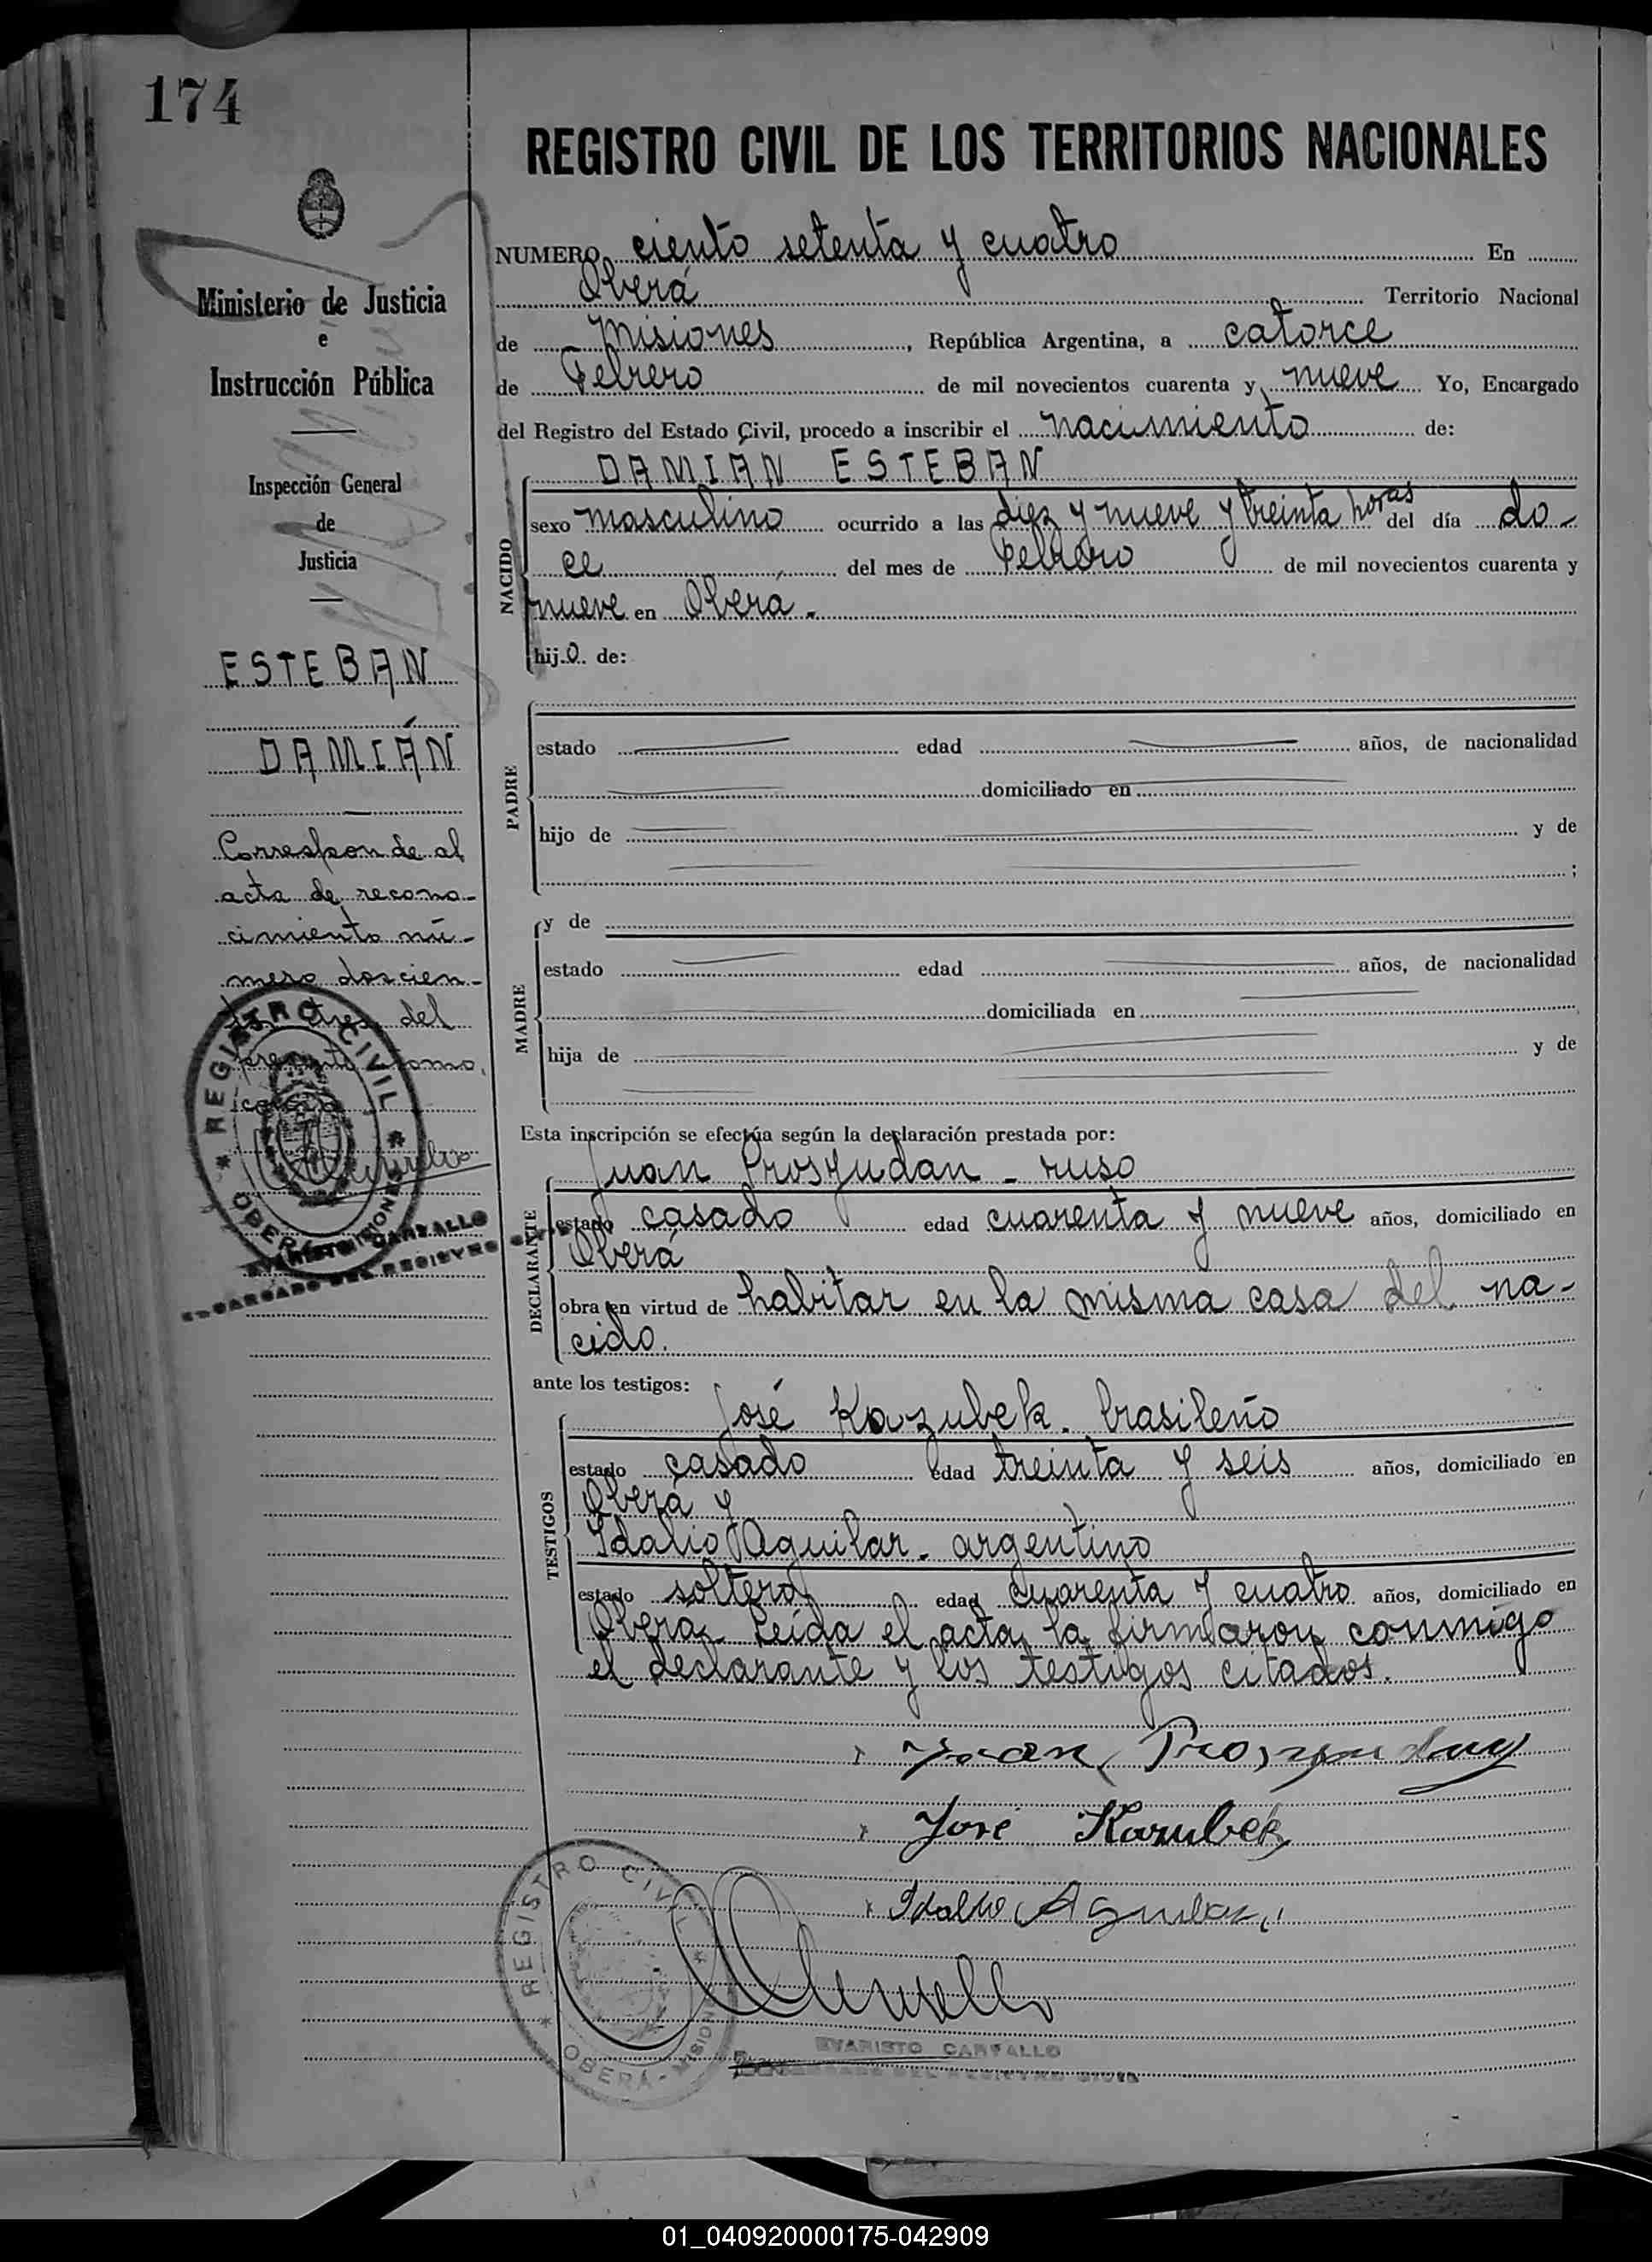 174
REGISTRO CIVIL DE LOS TERRITORIOS NACIONALES
NUMERO ciento setenta y cuatro En
Oberá Territorio Nacional
de Misiones, República Argentina, a catorce
de Febrero de mil novecientos cuarenta y nueve Yo, Encargado
del Registro del Estado Civil, procedo a inscribir el nacimiento de:
DAMIÁN ESTEBAN
NACIDO
sexo masculino ocurrido a las diez y nueve y treinta horas del día do-
ce del mes de Febrero de mil novecientos cuarenta y
nueve en Oberá.
hijo de:
PADRE
estado edad años, de nacionalidad
domiciliado en
hijo de y de
;
MADRE
y de
estado edad años, de nacionalidad
domiciliada en
hija de y de
Esta inscripción se efectúa según la declaración prestada por:
DECLARANTE
Juan Prosyudan - ruso
estado casado edad cuarenta y nueve años, domiciliado en
Oberá
obra en virtud de habitar en la misma casa del na-
cido.
ante los testigos:
TESTIGOS
José Kazubek. brasileño
estado casado edad treinta y seis años, domiciliado en
Oberá y
Idalio Aguilar. argentino
estado soltero edad cuarenta y cuatro años, domiciliado en
Oberá. Leída el acta, la firmaron conmigo
el declarante y los testigos citados.
José Kazubek
Idalio Aguilar
REGISTRO CIVIL
OBERÁ - MISIONES
EVARISTO CARVALLO
ENCARGADO DEL REGISTRO CIVIL
Ministerio de Justicia
e
Instrucción Pública
Inspección General
de
Justicia
ESTEBAN
DAMIÁN
Corresponde al
acta de recono-
cimiento nú-
mero doscien-
tos tres del
presente tomo.
REGISTRO CIVIL
OBERÁ MISIONES
EVARISTO CARVALLO
ENCARGADO DEL REGISTRO CIVIL
01_040920000175-042909